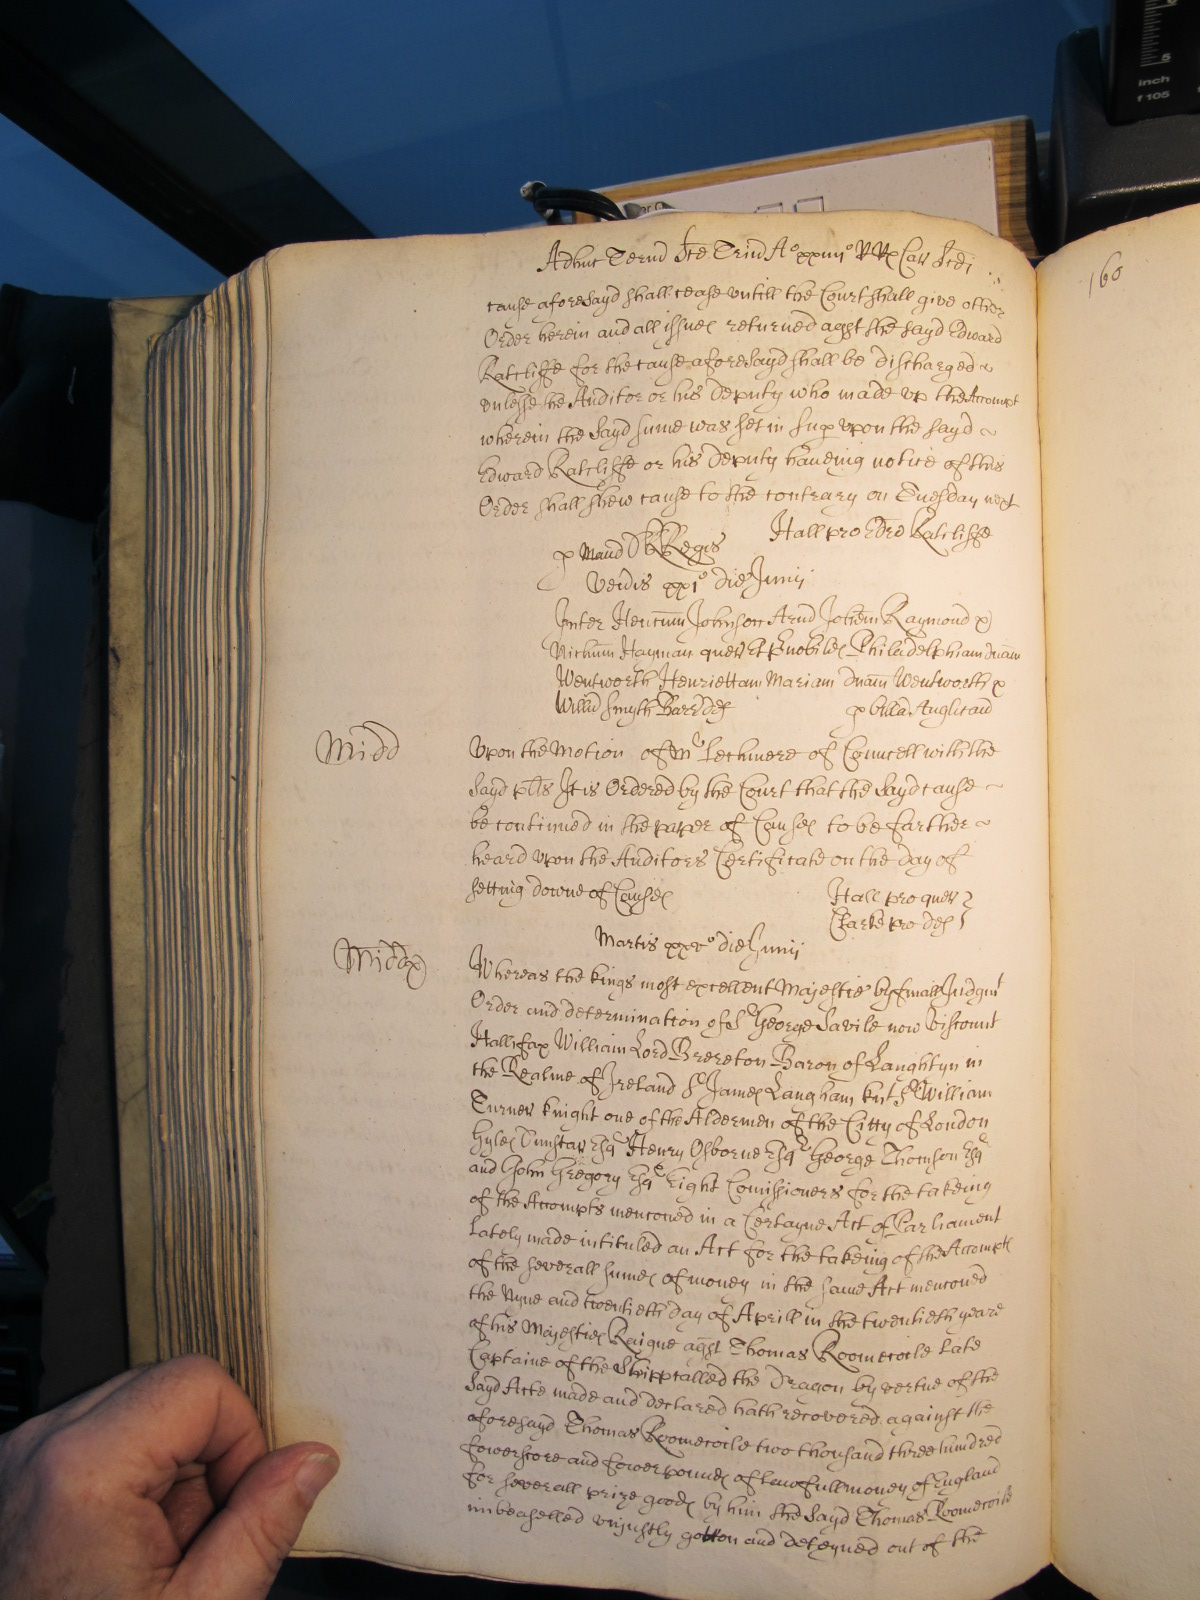 Adhuc Term Sce Trin A° xxiiii° RRx Car Scdi
160
inch
f 105
5
cause aforesayd shall cease vntill the Court shall give other
Order herein and all issues returned agst the sayd Edward
Ratcliffe for the cause aforesayd shall be discharged
vnlesse the Auditor or his Deputy who made vp the Accompt
wherein the sayd sume was set in sup vpon the sayd
Edward Ratcliffe or his Deputy haueing notice of this
Order shall shew cause to the contrary on Tuesday next
Hall pro Edro Ratcliffe
p Mand Regis
Veneris xxi° die Junij
Inter Henricum Johnson Arnd Johem Raymond
Nichum Hayman quer Et Prnobiles Philadelphiam dnam
Wentworth Henriettam Mariam dnam Wentworth
Willm Smyth Barr def p billa Anglicand
Midd
Vpon the Motion of Mr Lechmere of Councell with the
sayd plts It is Ordered by the Court that the sayd cause
be continued in the paper of Causes to be farther
heard vpon the Auditors Certificate on the day of
setting downe of Causes
Hall pro quer
Clarke pro def
Martis xxv° die Junij
Middx
Whereas the kings most excellent Majestie by finall Judgmt
Order and determination of Sr George Savile now Viscount
Hallifax William Lord Brereton Baron of Laughlyn in
the Realme of Ireland Sr James Langham knt Sr William
Turner knight one of the Aldermen of the Citty of London
Gyles Dunstar Esqr Henry Osborne Esqr George Thomson Esqr
and John Gregory Esqr Eight Comissioners for the takeing
of the Accompts menconed in a Certayne Act of Parliament
lately made intituled an Act for the takeing of the Accompts
of the severall sumes of money in the same Act menconed
the Nyne and twentieth day of Aprill in the twentieth yeare
of his Majesties Raigne agst Thomas Roomecoile late
Captaine of the Shipp called the Dragon by vertue of the
sayd Acte made and declared hath recovered against the
aforesayd Thomas Roomecoile two thousand three hundred
fowerscore and fower pounds of lawfull money of England
for severall prize goods by him the sayd Thomas Roomecoile
imbeaselled vnjustly gotten and deteyned out of the